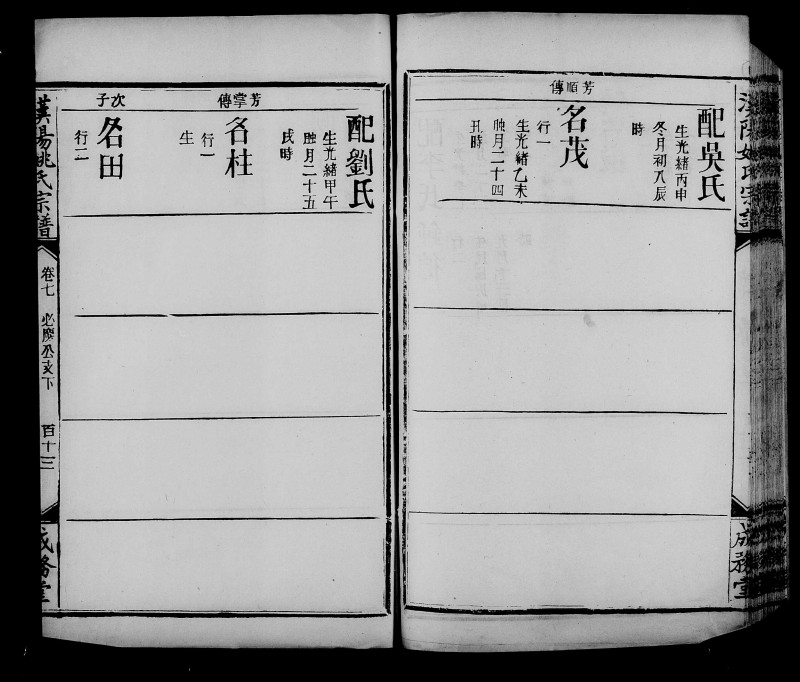 漢陽姚氏宗譜
成務堂
配吳氏
生光緒丙申
冬月初八辰
時
芳順傳
名茂
行一
生光緒乙未
腊月二十四
丑時
配劉氏
生光緒甲午
腊月二十五
戌時
芳掌傳
名柱
行一
生
次子
名田
行二
漢陽姚氏宗譜
卷七
必廣公支下
百十三
成務堂